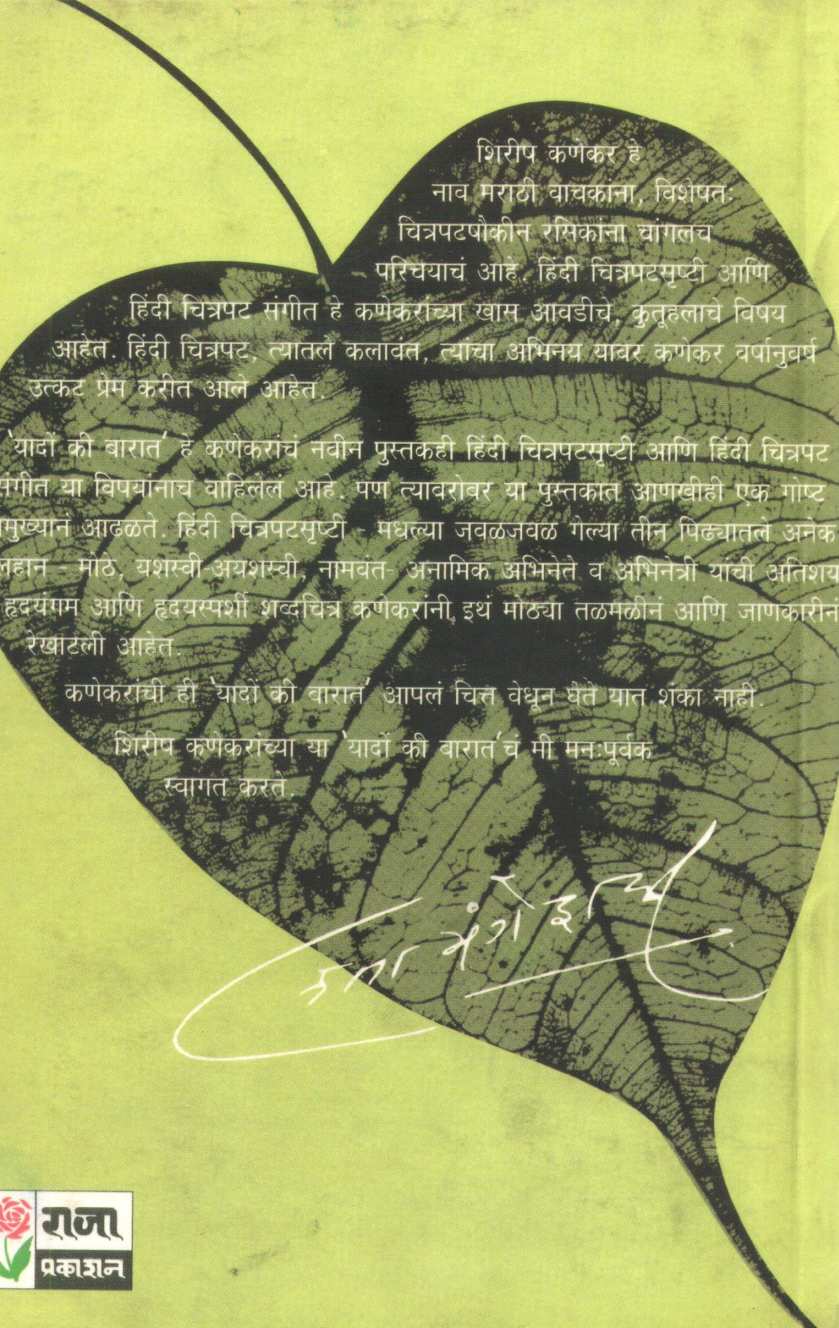 शिरीष कणेकर हे
नाव मराठी वाचकांना, विशेषतः
चित्रपटषौकीन रसिकांना चांगलंच
परिचयाचं आहे. हिंदी चित्रपटसृष्टी आणि
हिंदी चित्रपट संगीत हे कणेकरांच्या खास आवडीचे, कुतूहलाचे विषय
आहेत. हिंदी चित्रपट, त्यातले कलावंत, त्यांचा अभिनय यावर कणेकर वर्षानुवर्ष
उत्कट प्रेम करीत आले आहेत.
'यादों की बारात' हे कणेकरांचं नवीन पुस्तकही हिंदी चित्रपटसृष्टी आणि हिंदी चित्रपट
संगीत या विषयांनाच वाहिलेलं आहे. पण त्याबरोबर या पुस्तकात आणखीही एक गोष्ट
प्रमुख्यानं आढळते. हिंदी चित्रपटसृष्टी - मधल्या जवळजवळ गेल्या तीन पिढ्यातले अनेक
लहान - मोठे, यशस्वी-अयशस्वी, नामवंत- अनामिक अभिनेते व अभिनेत्री यांची अतिशय
हृदयंगम आणि हृदयस्पर्शी शब्दचित्रं कणेकरांनी इथं मोठ्या तळमळीनं आणि जाणकारीनं
रेखाटली आहेत.
कणेकरांची ही 'यादों की बारात' आपलं चित्त वेधून घेते यात शंका नाही.
शिरीष कणेकरांच्या या 'यादों की बारात'चं मी मनःपूर्वक
स्वागत करते.
लता मंगेशकर
राजा
प्रकाशन